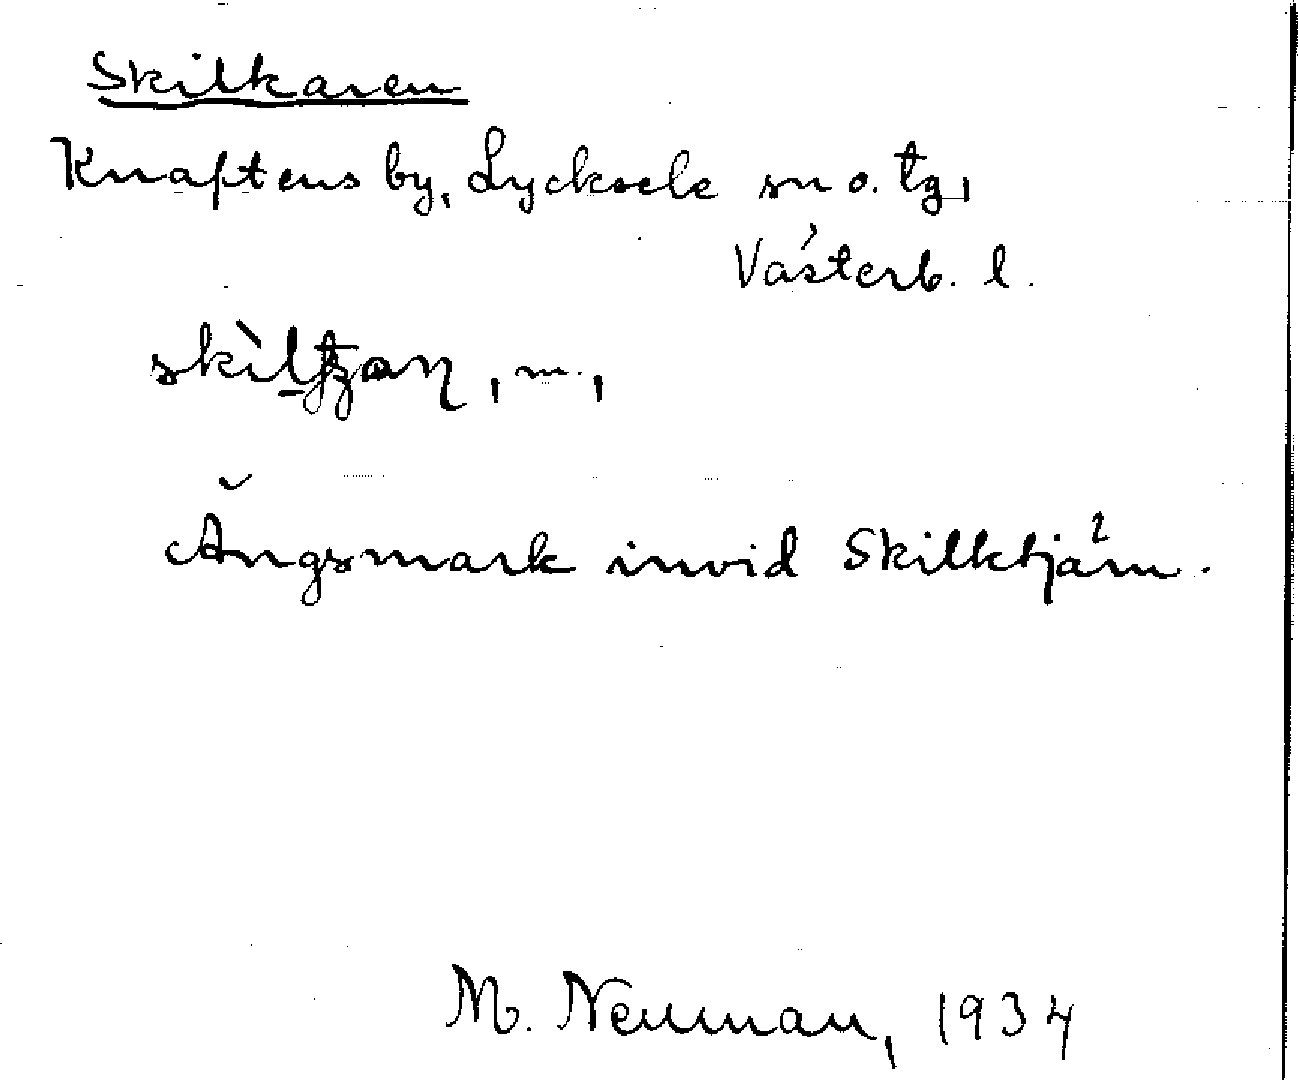 Skilkaren
Knaftens by, Lycksele sn o. tg,
Västerb. l.
, m.,
Ängsmark invid Skilktjärn.
M. Neuman, 1934